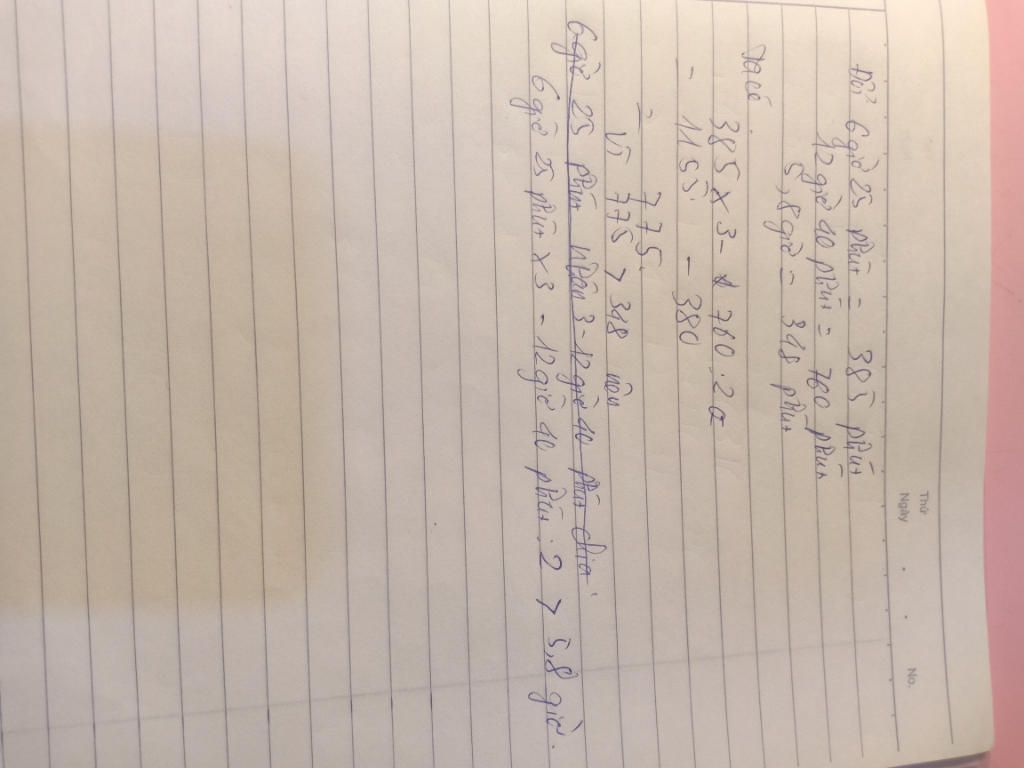 Thứ
Ngày
No.
Đổi 6 giờ 25 phút = 385 phút
12 giờ 40 phút = 760 phút
5,8 giờ = 348 phút
Ta có.
385 x 3 - 760 : 2 =
= 1155 - 380
= 775.
Vì 775 > 348 nên
6 giờ 25 phút nhân 3 - 12 giờ 40 phút chia
6 giờ 25 phút x 3 - 12 giờ 40 phút : 2 > 5,8 giờ.